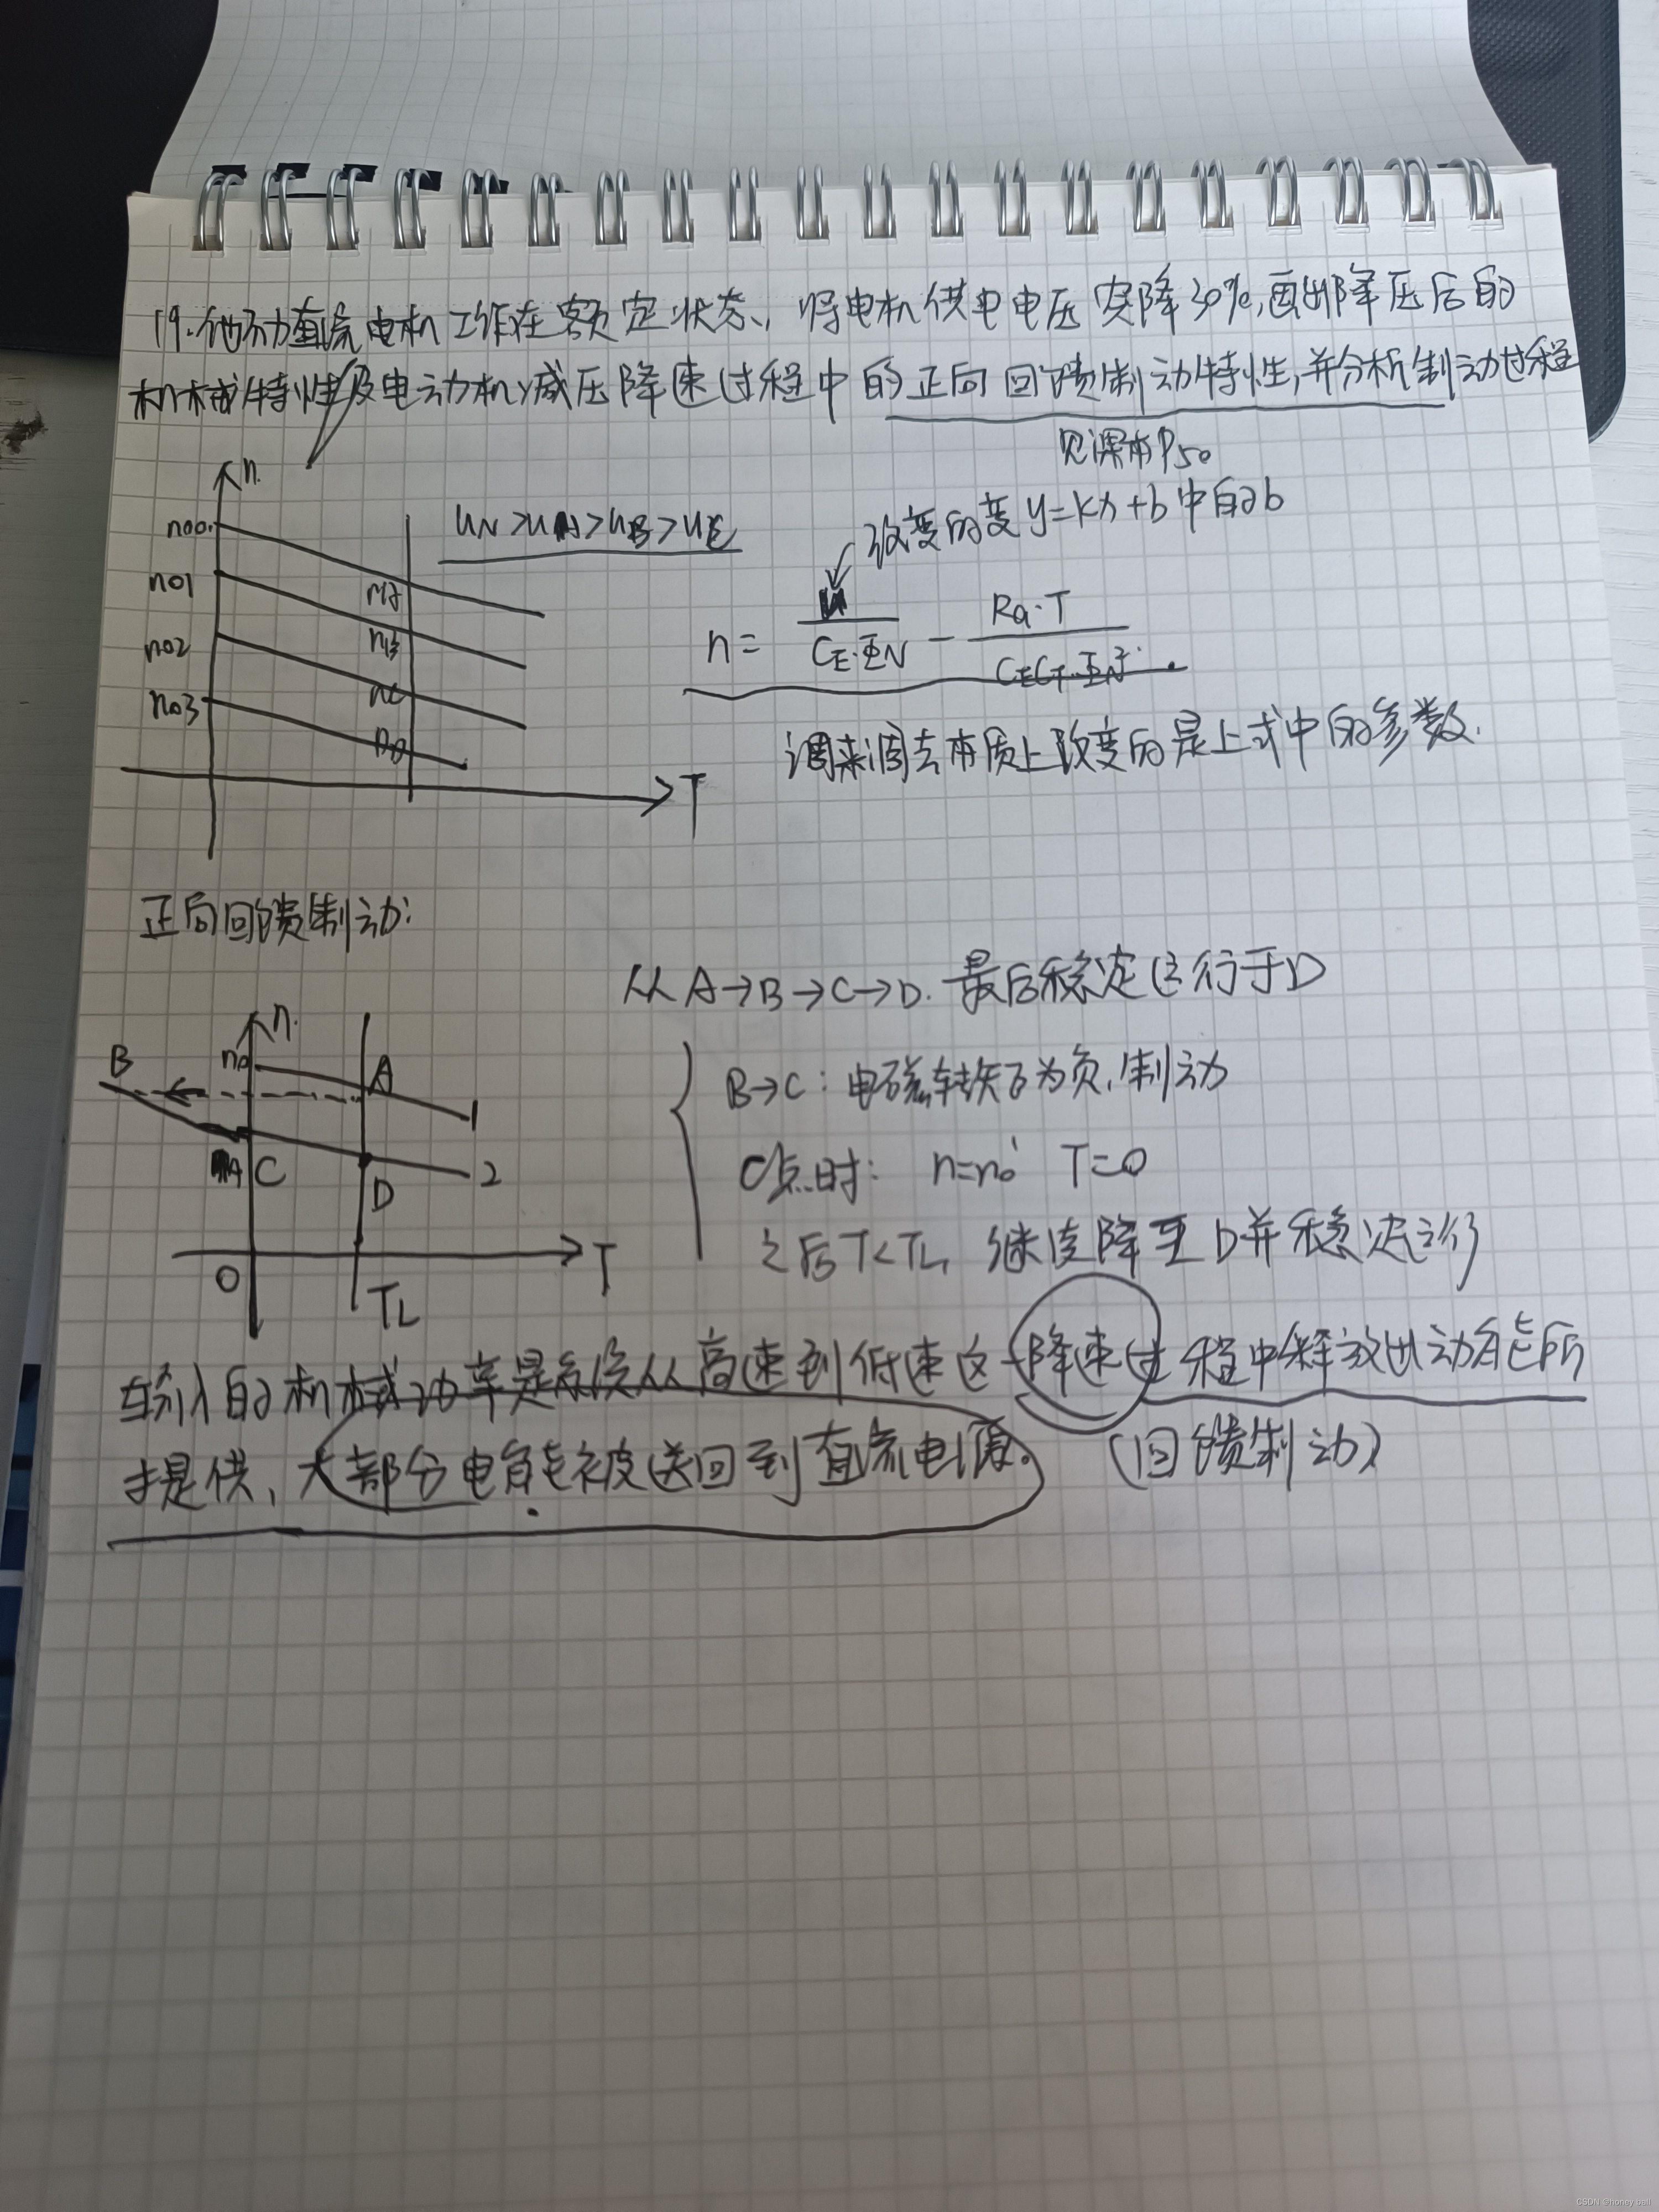 19.他励直流电机工作在额定状态,将电机供电电压突降30%,画出降压后的
机械特性及电动机减压降速过程中的正向回馈制动特性,并分析制动过程
见课本P50
n
n00
n01
n02
n03
nC
T
UN>UA>UB>UC
改变的变y=kx+b中的b
n= U/CE·ΦN - Ra·T/CECT·ΦN²
调来调去本质上改变的是上式中的参数.
正向回馈制动:
从A→B→C→D. 最后稳定运行于D
B→C:电磁转矩T为负,制动
C点时: n=n0' T=0
之后T<TL, 继续降至D并稳定运行
n
B
n0
A
1
C
2
D
O
T
TL
输入的机械功率是系统从高速到低速这一降速过程中释放出动能所
提供,大部分电能被送回到直流电源。 (回馈制动)
CSDN @honey ball